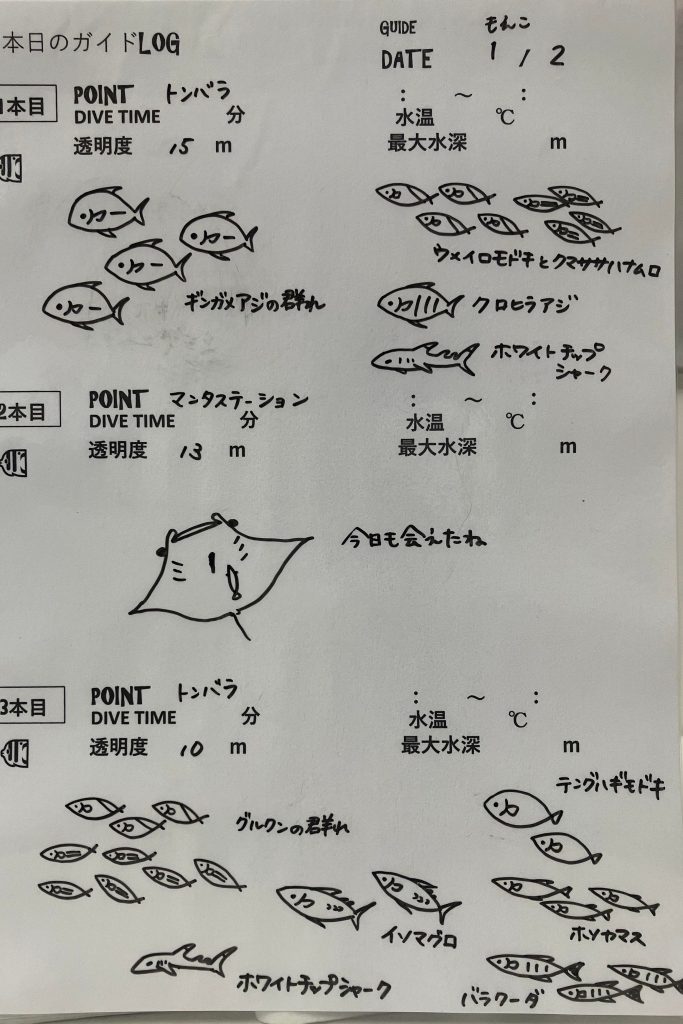 本日のガイドLOG
GUIDE もんこ
DATE 1 / 2
1本目
POINT トンバラ
DIVE TIME 分
透明度 15 m
: ～ :
水温 ℃
最大水深 m
ギンガメアジの群れ
ウメイロモドキとクマササハナムロ
クロヒラアジ
ホワイトチップ
シャーク
2本目
POINT マンタステーション
DIVE TIME 分
透明度 13 m
: ～ :
水温 ℃
最大水深 m
今日も会えたね
3本目
POINT トンバラ
DIVE TIME 分
透明度 10 m
: ～ :
水温 ℃
最大水深 m
グルクンの群れ
テングハギモドキ
イソマグロ
ホソカマス
ホワイトチップシャーク
バラクーダ